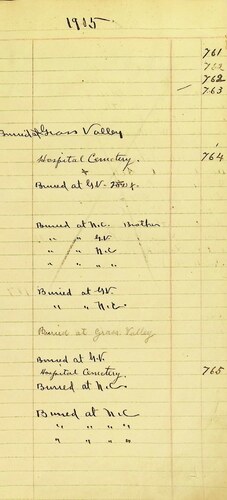 1915
761
762
762
763
Buried at Grass Valley
Hospital Cemetery. 764
Buried at G.V.
Buried at N.C. Brother
" " G.V.
" " N.C
" " " "
Buried at G.V.
" " N.C.
Buried at Grass Valley
Buried at G.V.
Hospital Cemetery. 765
Buried at N.C.
Buried at N.C
" " " "
" " " "